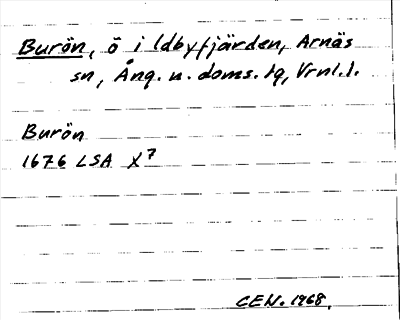 Burön, ö i Idbyfjärden, Arnäs
sn, Ång. n. doms. lg, Vrnl. l.
Burön
1676 LSA X7
CEN. 1968.